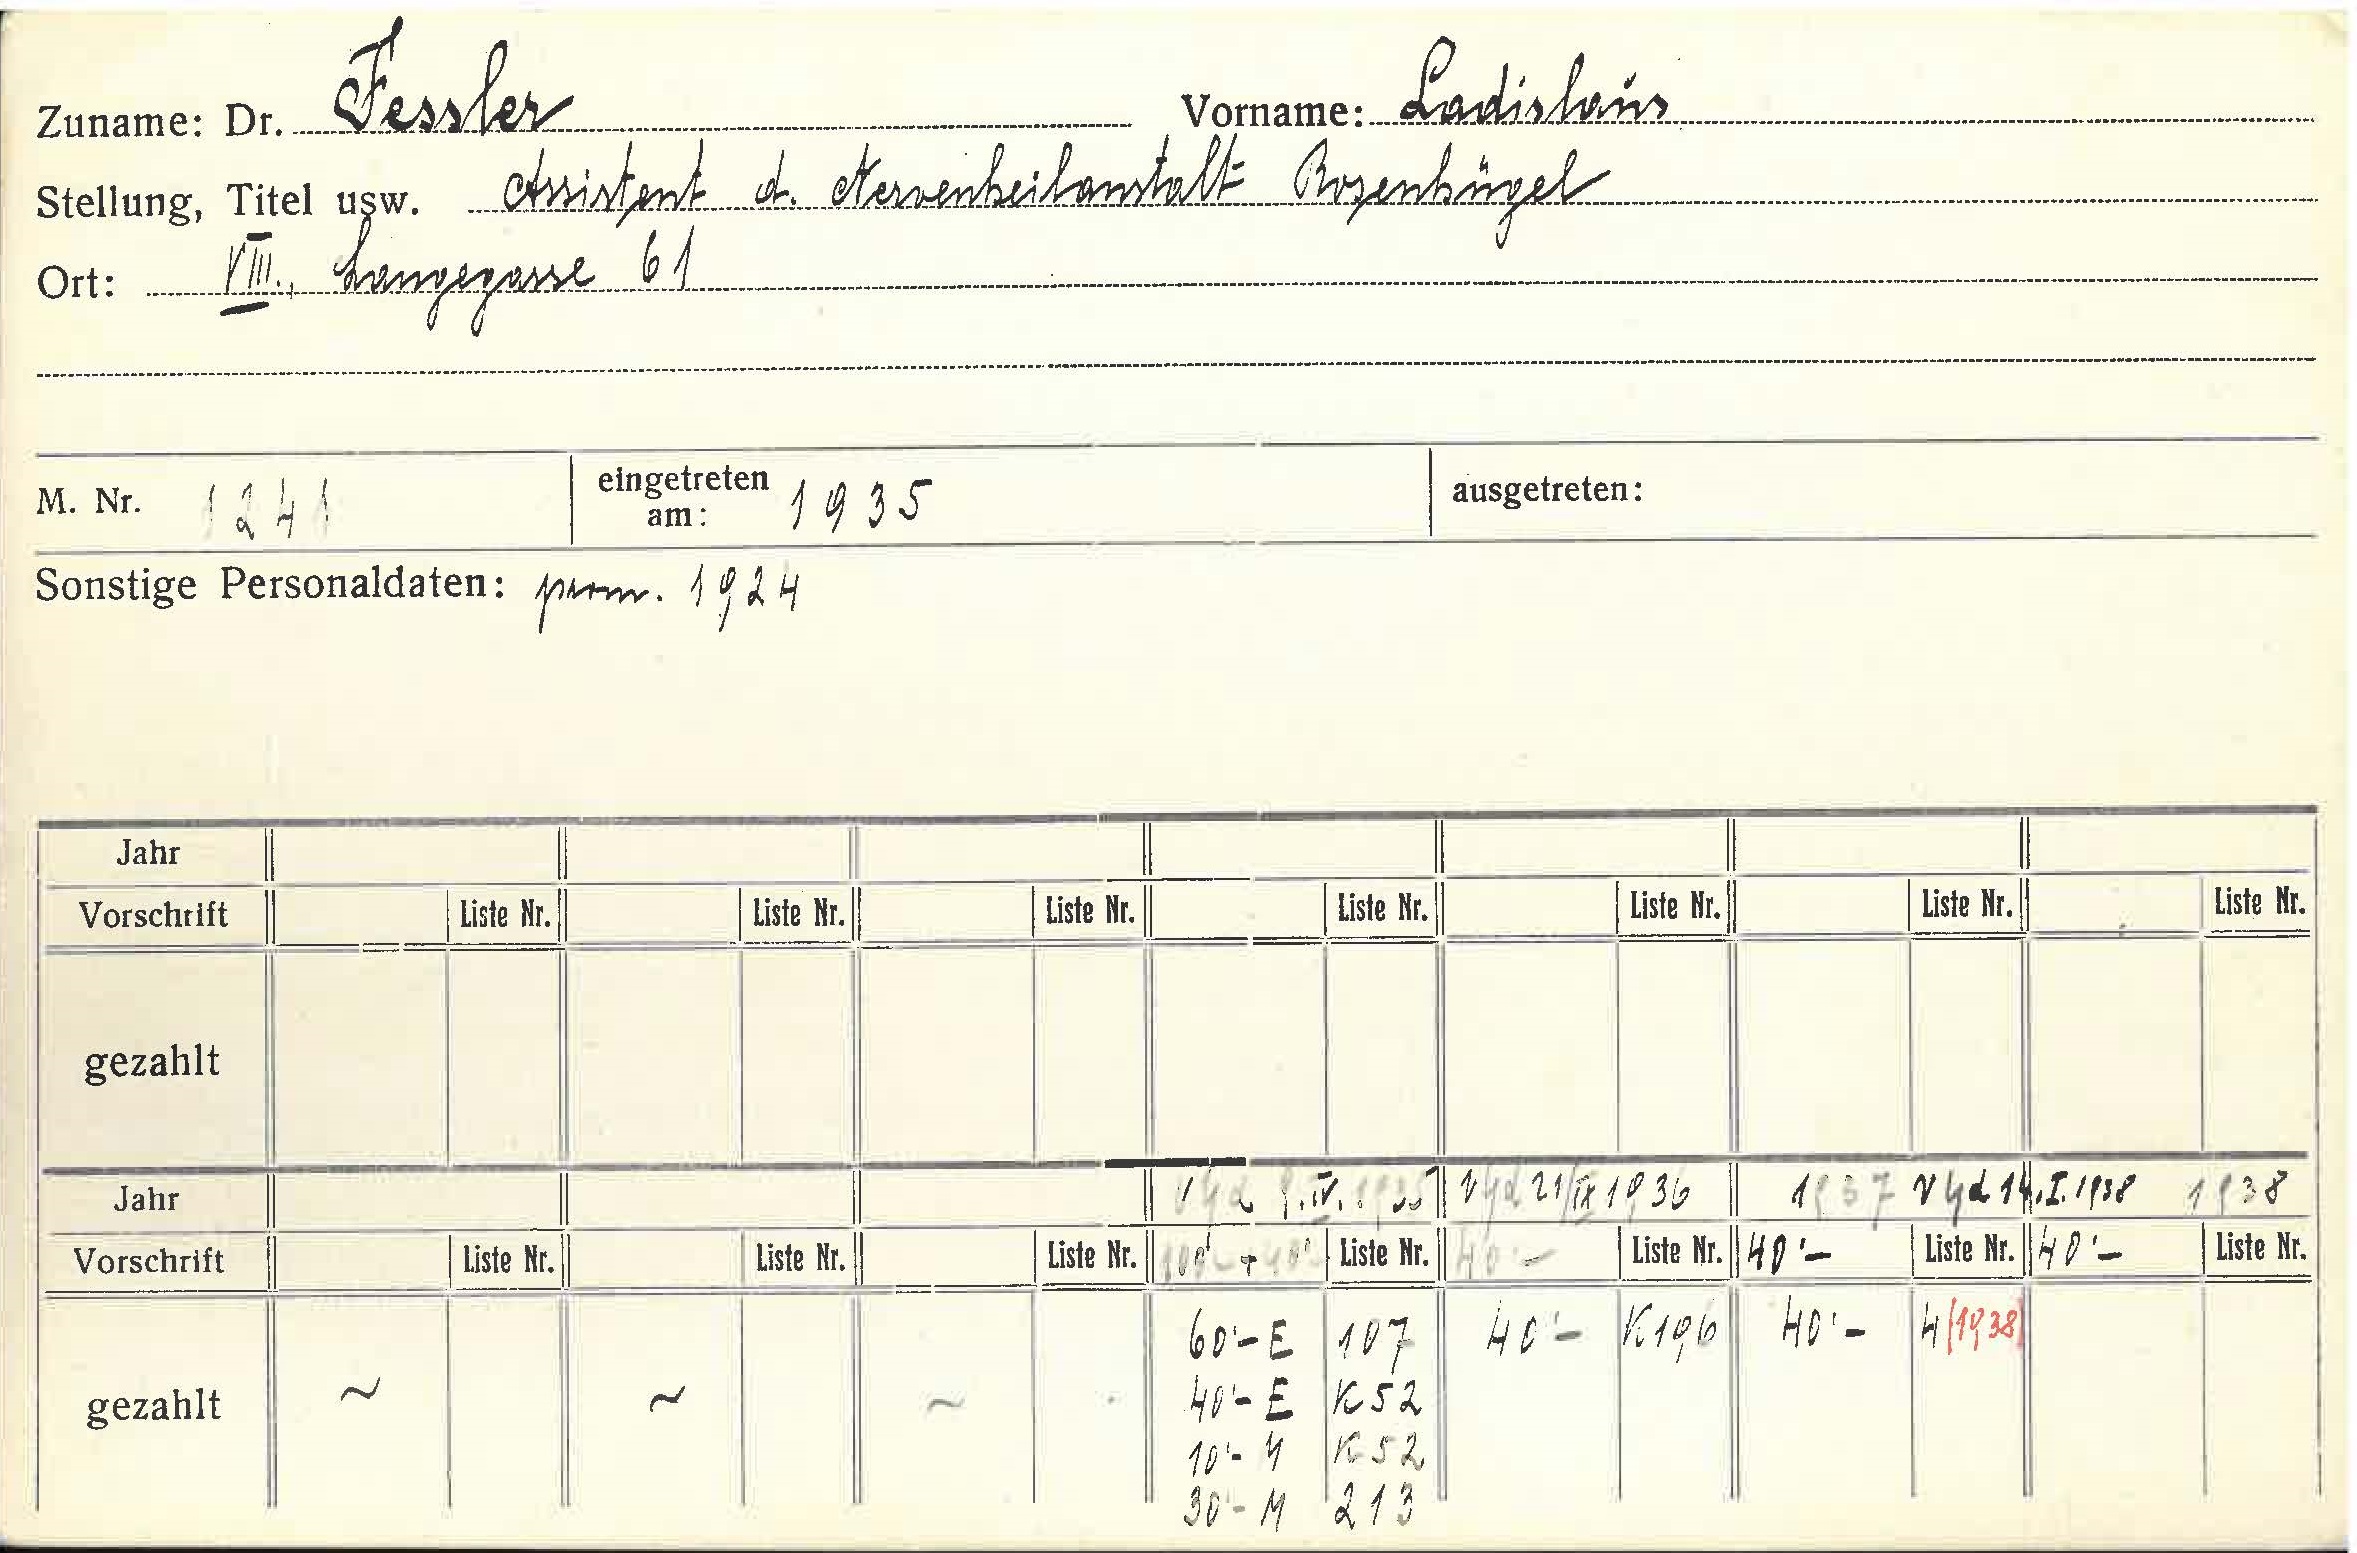 Zuname: Dr. Fessler Vorname: Ladislaus
Stellung, Titel usw. Assistent d. Nervenheilanstalt Rosenhügel
Ort: VIII., Langegasse 61
M. Nr. 1241 eingetreten am: 1935 ausgetreten:
Sonstige Personaldaten: prom. 1924
Jahr
Vorschrift Liste Nr. Liste Nr. Liste Nr. Liste Nr. Liste Nr. Liste Nr. Liste Nr.
gezahlt
Jahr IV. 1935 21/IX 1936 1937 14. I. 1938 1938
Vorschrift Liste Nr. Liste Nr. Liste Nr. 100'- + 40'- Liste Nr. 40'- Liste Nr. 40'- Liste Nr. 40'- Liste Nr.
60'- E 107 40'- K196 40'- 4 (1938)
gezahlt ~ ~ ~ 40'- E K52
10'- M K52
30'- M 213